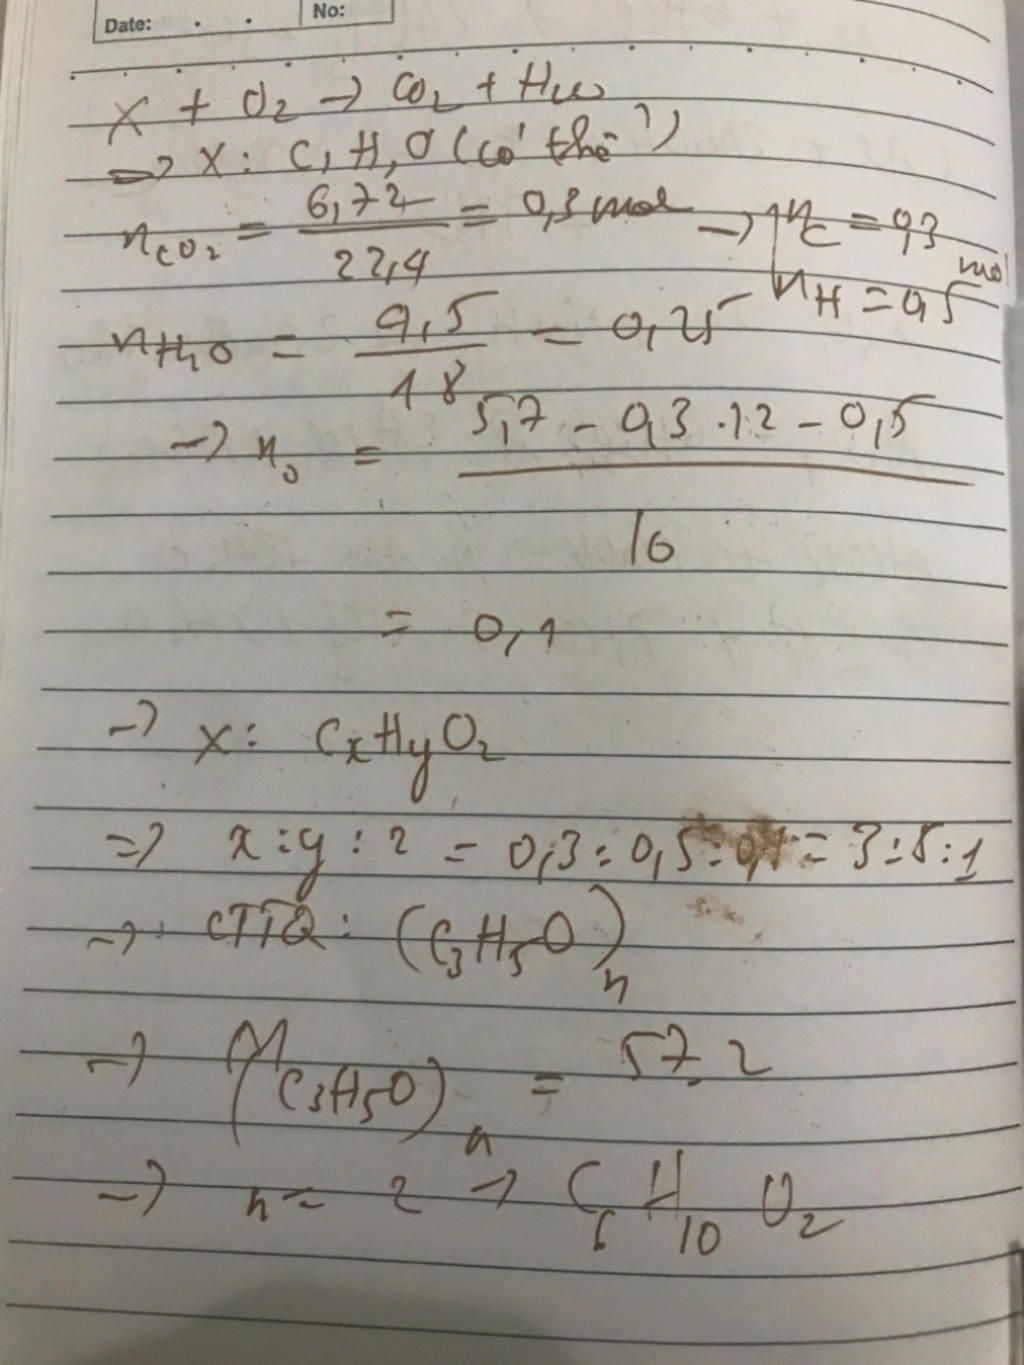 Date: . . No:
X + O2 → CO2 + H2O
=> X: C, H, O (có thể)
nCO2 = 6,72 / 22,4 = 0,3 mol → nC = 0,3 mol
nH = 0,5
nH2O = 4,5 / 18 = 0,25
→ nO = 5,7 - 0,3 . 12 - 0,5 / 16
= 0,1
→ X: CxHyOz
=> x : y : z = 0,3 : 0,5 : 0,1 = 3 : 5 : 1
→ CTTQ: (C3H5O)n
→ M(C3H5O)n = 57.2
→ n = 2 → C6H10O2